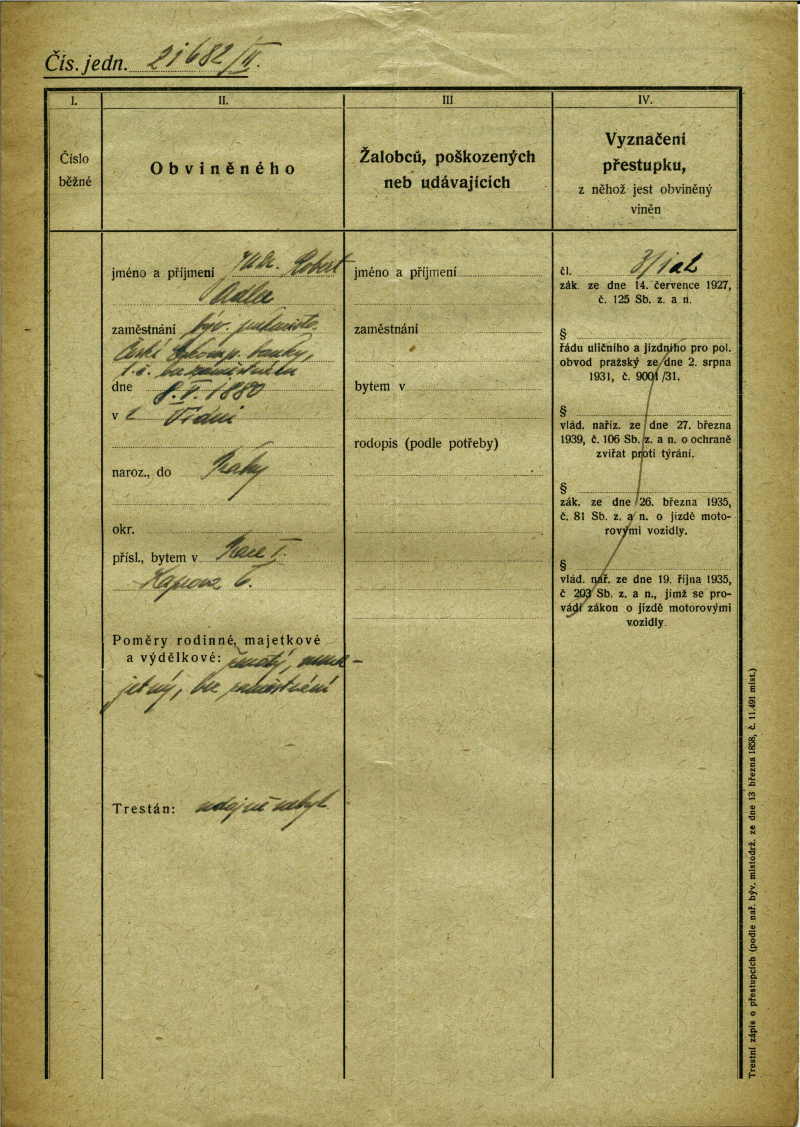 Čís. jedn. 21682/II.
I.
Číslo
běžné
II.
Obviněného
III
Žalobců, poškozených
neb udávajících
IV.
Vyznačení
přestupku,
z něhož jest obviněný
viněn
jméno a příjmení JUDr. Robert
Adler
zaměstnání býv.
České banky,
t. č. bez zaměstnání
dne 8. V. 1880
v
naroz., do Prahy
okr.
přísl., bytem v Praze I.
Kaprova 6.
Poměry rodinné, majetkové
a výdělkové: ženatý, nema-
jetný, bez zaměstnání
Trestán: údajně nebyl
jméno a příjmení
zaměstnání
bytem v
rodopis (podle potřeby)
čl. 3/1 a 2
zák. ze dne 14. července 1927,
č. 125 Sb. z. a n.
§
řádu uličního a jízdního pro pol.
obvod pražský ze dne 2. srpna
1931, č. 9001/31.
§
vlád. naříz. ze dne 27. března
1939, č. 106 Sb. z. a n. o ochraně
zvířat proti týrání.
§
zák. ze dne 26. března 1935,
č. 81 Sb. z. a n. o jízdě moto-
rovými vozidly.
§
vlád. nař. ze dne 19. října 1935,
č 203 Sb. z. a n., jímž se pro-
vádí zákon o jízdě motorovými
vozidly.
Trestní zápis o přestupcích (podle nař. býv. místodrž. ze dne 13 března 1858, č. 11.491 míst.)